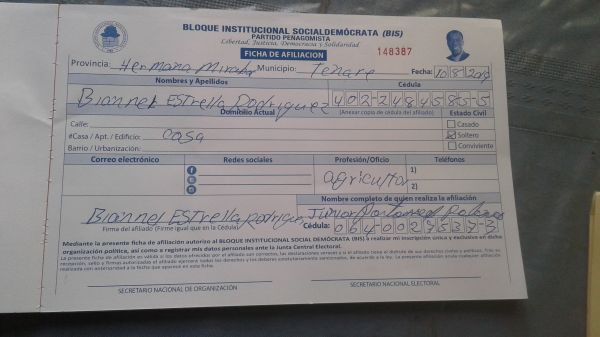 BLOQUE INSTITUCIONAL SOCIALDEMÓCRATA (BIS)
PARTIDO PEÑAGOMISTA
Libertad, Justicia, Democracia y Solidaridad
FICHA DE AFILIACION 148387
Provincia: Hermana Mirabal Municipio: Tenare Fecha: 10/8/2019
Nombres y Apellidos Cédula
Biannel Estrella Rodriguez 402-2484585-5
Domicilio Actual (Anexar copia de cédula del afiliado) Estado Civil
Calle: Casado
#Casa / Apt. / Edificio: casa Soltero
Barrio / Urbanización: Conviviente
Correo electrónico Redes sociales Profesión/Oficio Teléfonos
agricultor 1)
2)
Nombre completo de quien realiza la afiliación
Biannel Estrella Rodriguez Junior
Firma del afiliado (Firme igual que en la Cédula) Cédula: 064 0029537 3
Mediante la presente ficha de afiliación autorizo al BLOQUE INSTITUCIONAL SOCIAL DEMÓCRATA (BIS) a realizar mi inscripción única y exclusiva en dicha
organización política, así como a registrar mis datos personales ante la Junta Central Electoral.
SECRETARIO NACIONAL DE ORGANIZACIÓN SECRETARIO NACIONAL ELECTORAL